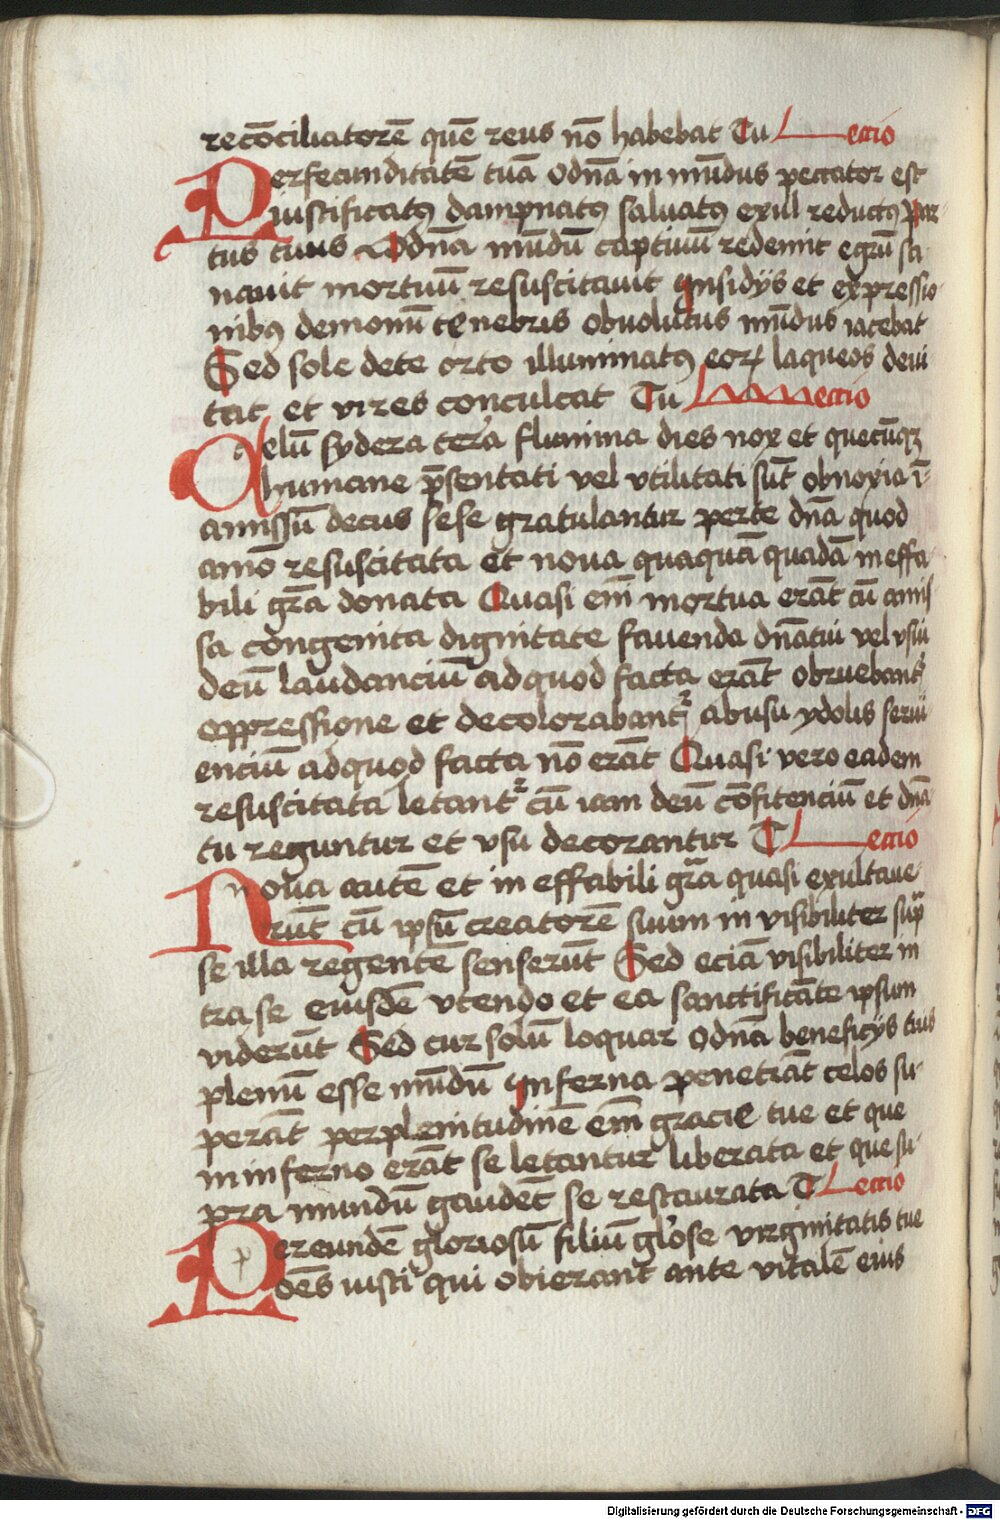 recōciliatorē quē reus nō habebat Tu Leccio
Perfecunditatē tuā Odnā in mūdus peccator est
iustificatꝰ dampnatꝰ saluatꝰ exul reductꝰ par-
tus tuus Odnā mūdū captiuū redemit egrū sa
nauit mortuū resuscitauit Insidijs et expressio-
nibꝰ demonū tenebris obuolutus mūdus iacebat
Sed sole dete orto illuminatꝰ eorꝝ laqueos deui
tat et vires conculcat Tu Leccio
Celū sydera terra flumina dies nox et quecūqꝫ
humane p̄sentati vel vtilitati sūt obnoxia ī-
amissū decus sese gratulantur perte dnā quod
amō resuscitata et noua quaquā quadā ineffa-
bili grā donata Quasi em̄ mortua erāt cū amis
sa congenita dignitate fauenda dnātui vel vsui
deū laudanciū adquod facta erāt obruebant᷑
oppressione et decolorabant᷑ abusu ydolis serui
enciū adquod facta nō erāt Quasi vero eadem
resuscitata letant᷑ cū iam deū cōfitenciū et dnā
tu reguntur et vsu decorantur T Leccio
Noua autē et in effabili grā quasi exultaue-
rūt cū ipsū creatorē suum in visibiliter sup̄
se illa regentē senserūt Sed eciā visibiliter in
tra se eiusdē vtendo et ea sanctificāte ipsum
viderūt Sed cur solū loquar Odnā beneficijs tuis
plenū esse mūdū Inferna penetrāt celos su-
perāt perplenitudinē em̄ gracie tue et que
in inferno erāt se letantur liberata et que su-
pra mundū gaudēt se restaurata T Leccio
Pereundē gloriosū filiū glōse virginitatis tue
dēs iusti qui obierant ante vitalē eius
Digitalisierung gefördert durch die Deutsche Forschungsgemeinschaft - DFG